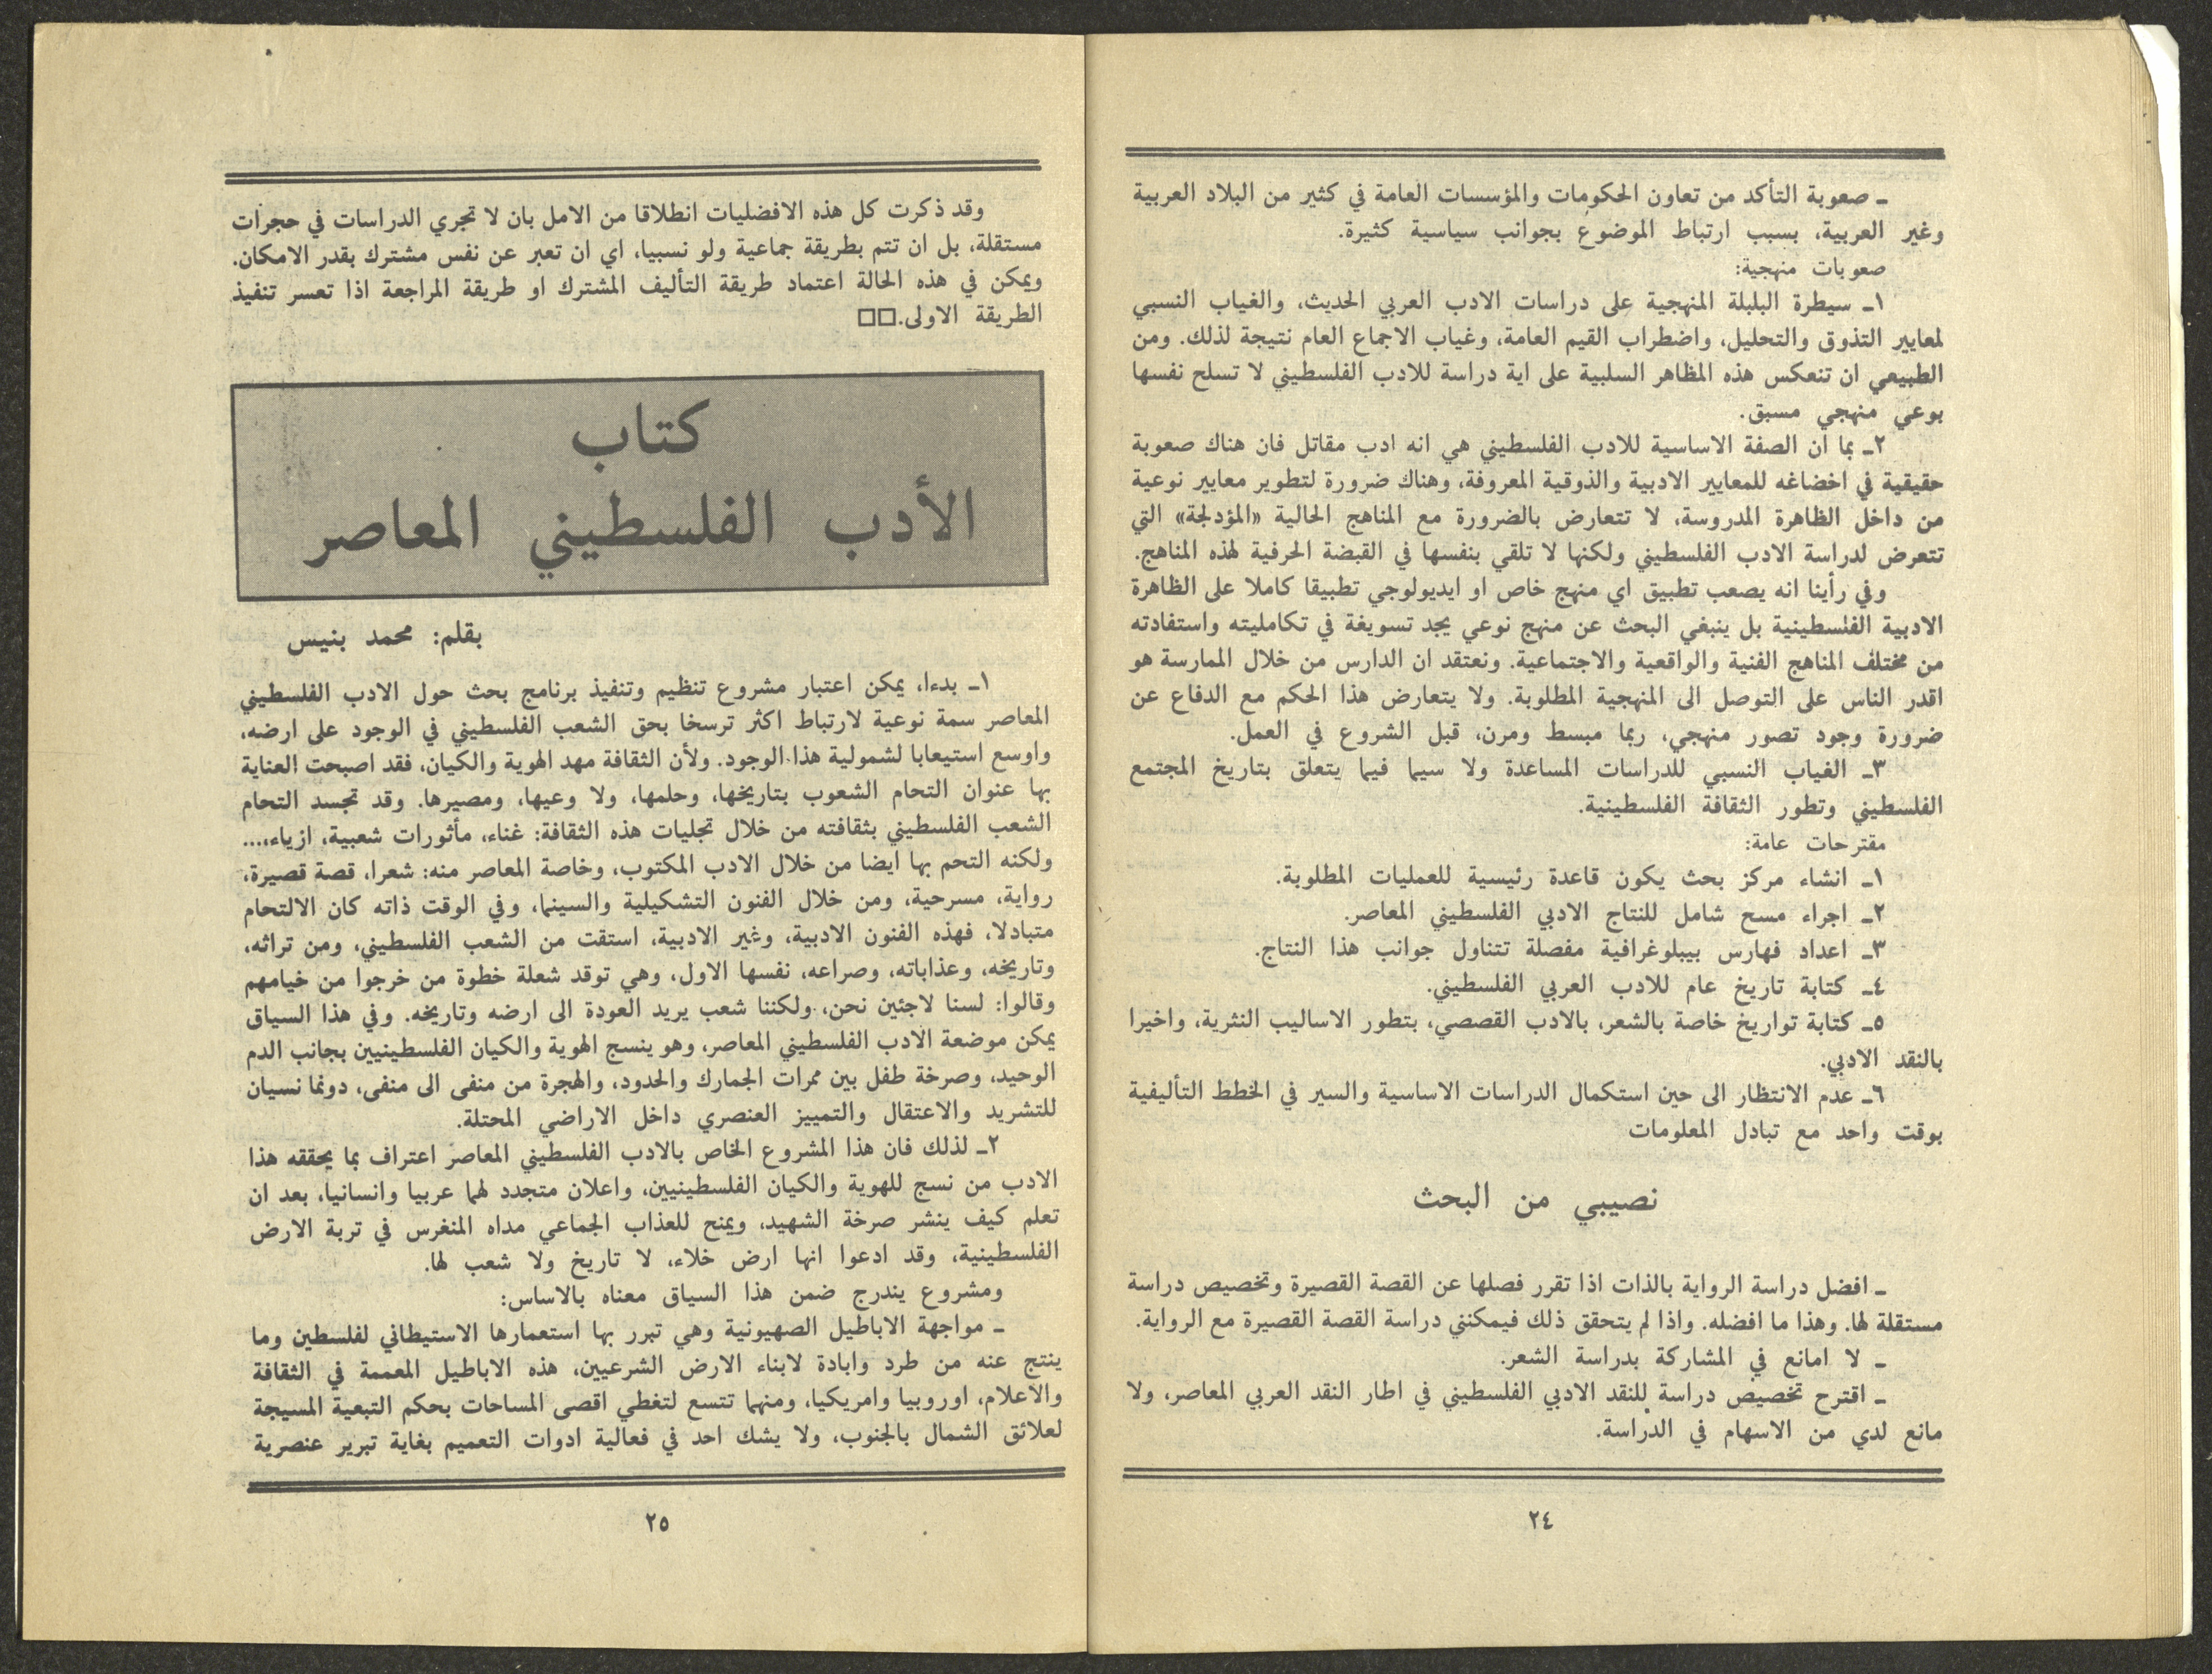 ـ صعوبة التأكد من تعاون الحكومات والمؤسسات العامة في كثير من البلاد العربية
وغير العربية، بسبب ارتباط الموضوع بجوانب سياسية كثيرة.
صعوبات منهجية:
١ـ سيطرة البلبلة المنهجية على دراسات الادب العربي الحديث، والغياب النسبي
لمعايير التذوق والتحليل، واضطراب القيم العامة، وغياب الاجماع العام نتيجة لذلك. ومن
الطبيعي ان تنعكس هذه المظاهر السلبية على اية دراسة للادب الفلسطيني لا تسلح نفسها
بوعي منهجي مسبق.
٢ـ بما ان الصفة الاساسية للادب الفلسطيني هي انه ادب مقاتل فان هناك صعوبة
حقيقية في اخضاغه للمعايير الادبية والذوقية المعروفة، وهناك ضرورة لتطوير معايير نوعية
من داخل الظاهرة المدروسة، لا تتعارض بالضرورة مع المناهج الحالية «المؤدلجة» التي
تتعرض لدراسة الادب الفلسطيني ولكنها لا تلقي بنفسها في القبضة الحرفية لهذه المناهج.
وفي رأينا انه يصعب تطبيق اي منهج خاص او ايديولوجي تطبيقا كاملا على الظاهرة
الادبية الفلسطينية بل ينبغي البحث عن منهج نوعي يجد تسويغة في تكامليته واستفادته
من مختلف المناهج الفنية والواقعية والاجتماعية. ونعتقد ان الدارس من خلال الممارسة هو
اقدر الناس على التوصل الى المنهجية المطلوبة. ولا يتعارض هذا الحكم مع الدفاع عن
ضرورة وجود تصور منهجي، ربما مبسط ومرن، قبل الشروع في العمل.
٣ـ الغياب النسبي للدراسات المساعدة ولا سيما فيما يتعلق بتاريخ المجتمع
الفلسطيني وتطور الثقافة الفلسطينية.
مقترحات عامة:
١ـ انشاء مركز بحث يكون قاعدة رئيسية للعمليات المطلوبة.
٢ـ اجراء مسح شامل للنتاج الادبي الفلسطيني المعاصر.
٣ـ اعداد فهارس بيبلوغرافية مفصلة تتناول جوانب هذا النتاج.
٤ـ كتابة تاريخ عام للادب العربي الفلسطيني.
٥ـ كتابة تواريخ خاصة بالشعر، بالادب القصصي، بتطور الاساليب النثرية، واخيرا
بالنقد الادبي.
٦ـ عدم الانتظار الى حين استكمال الدراسات الاساسية والسير في الخطط التأليفية
بوقت واحد مع تبادل المعلومات
نصيبي من البحث
ـ افضل دراسة الرواية بالذات اذا تقرر فصلها عن القصة القصيرة وتخصيص دراسة
مستقلة لها. وهذا ما افضله. واذا لم يتحقق ذلك فيمكنني دراسة القصة القصيرة مع الرواية.
ـ لا امانع في المشاركة بدراسة الشعر.
ـ اقترح تخصيص دراسة للنقد الادبي الفلسطيني في اطار النقد العربي المعاصر، ولا
مانع لدي من الاسهام في الدراسة.
٢٤
وقد ذكرت كل هذه الافضليات انطلاقا من الامل بان لا تجري الدراسات في حجرات
مستقلة، بل ان تتم بطريقة جماعية ولو نسبيا، اي ان تعبر عن نفس مشترك بقدر الامكان.
ويمكن في هذه الحالة اعتماد طريقة التأليف المشترك او طريقة المراجعة اذا تعسر تنفيذ
الطريقة الاولى.□□
كتاب
الأدب الفلسطيني المعاصر
بقلم: محمد بنيس
١ـ بدءا، يمكن اعتبار مشروع تنظيم وتنفيذ برنامج بحث حول الادب الفلسطيني
المعاصر سمة نوعية لارتباط اكثر ترسخا بحق الشعب الفلسطيني في الوجود على ارضه،
واوسع استيعابا لشمولية هذا الوجود. ولأن الثقافة مهد الهوية والكيان، فقد اصبحت العناية
بها عنوان التحام الشعوب بتاريخها، وحلمها، ولا وعيها، ومصيرها. وقد تجسد التحام
الشعب الفلسطيني بثقافته من خلال تجليات هذه الثقافة: غناء، مأثورات شعبية، ازياء،...
ولكنه التحم بها ايضا من خلال الادب المكتوب، وخاصة المعاصر منه: شعرا، قصة قصيرة،
رواية، مسرحية، ومن خلال الفنون التشكيلية والسينما، وفي الوقت ذاته كان الالتحام
متبادلا، فهذه الفنون الادبية، وغير الادبية، استقت من الشعب الفلسطيني، ومن تراثه،
وتاريخه، وعذاباته، وصراعه، نفسها الاول، وهي توقد شعلة خطوة من خرجوا من خيامهم
وقالوا: لسنا لاجئين نحن، ولكننا شعب يريد العودة الى ارضه وتاريخه. وفي هذا السياق
يمكن موضعة الادب الفلسطيني المعاصر، وهو ينسج الهوية والكيان الفلسطينيين بجانب الدم
الوحيد، وصرخة طفل بين ممرات الجمارك والحدود، والهجرة من منفى الى منفى، دونما نسيان
للتشريد والاعتقال والتمييز العنصري داخل الاراضي المحتلة.
٢ـ لذلك فان هذا المشروع الخاص بالادب الفلسطيني المعاصر اعتراف بما يحققه هذا
الادب من نسج للهوية والكيان الفلسطينيين، واعلان متجدد لهما عربيا وانسانيا، بعد ان
تعلم كيف ينشر صرخة الشهيد، ويمنح للعذاب الجماعي مداه المنغرس في تربة الارض
الفلسطينية، وقد ادعوا انها ارض خلاء، لا تاريخ ولا شعب لها.
ومشروع يندرج ضمن هذا السياق معناه بالاساس:
ـ مواجهة الاباطيل الصهيونية وهي تبرر بها استعمارها الاستيطاني لفلسطين وما
ينتج عنه من طرد وابادة لابناء الارض الشرعيين، هذه الاباطيل المعممة في الثقافة
والاعلام، اوروبيا وامريكيا، ومنهما تتسع لتغطي اقصى المساحات بحكم التبعية المسيجة
لعلائق الشمال بالجنوب، ولا يشك احد في فعالية ادوات التعميم بغاية تبرير عنصرية
٢٥